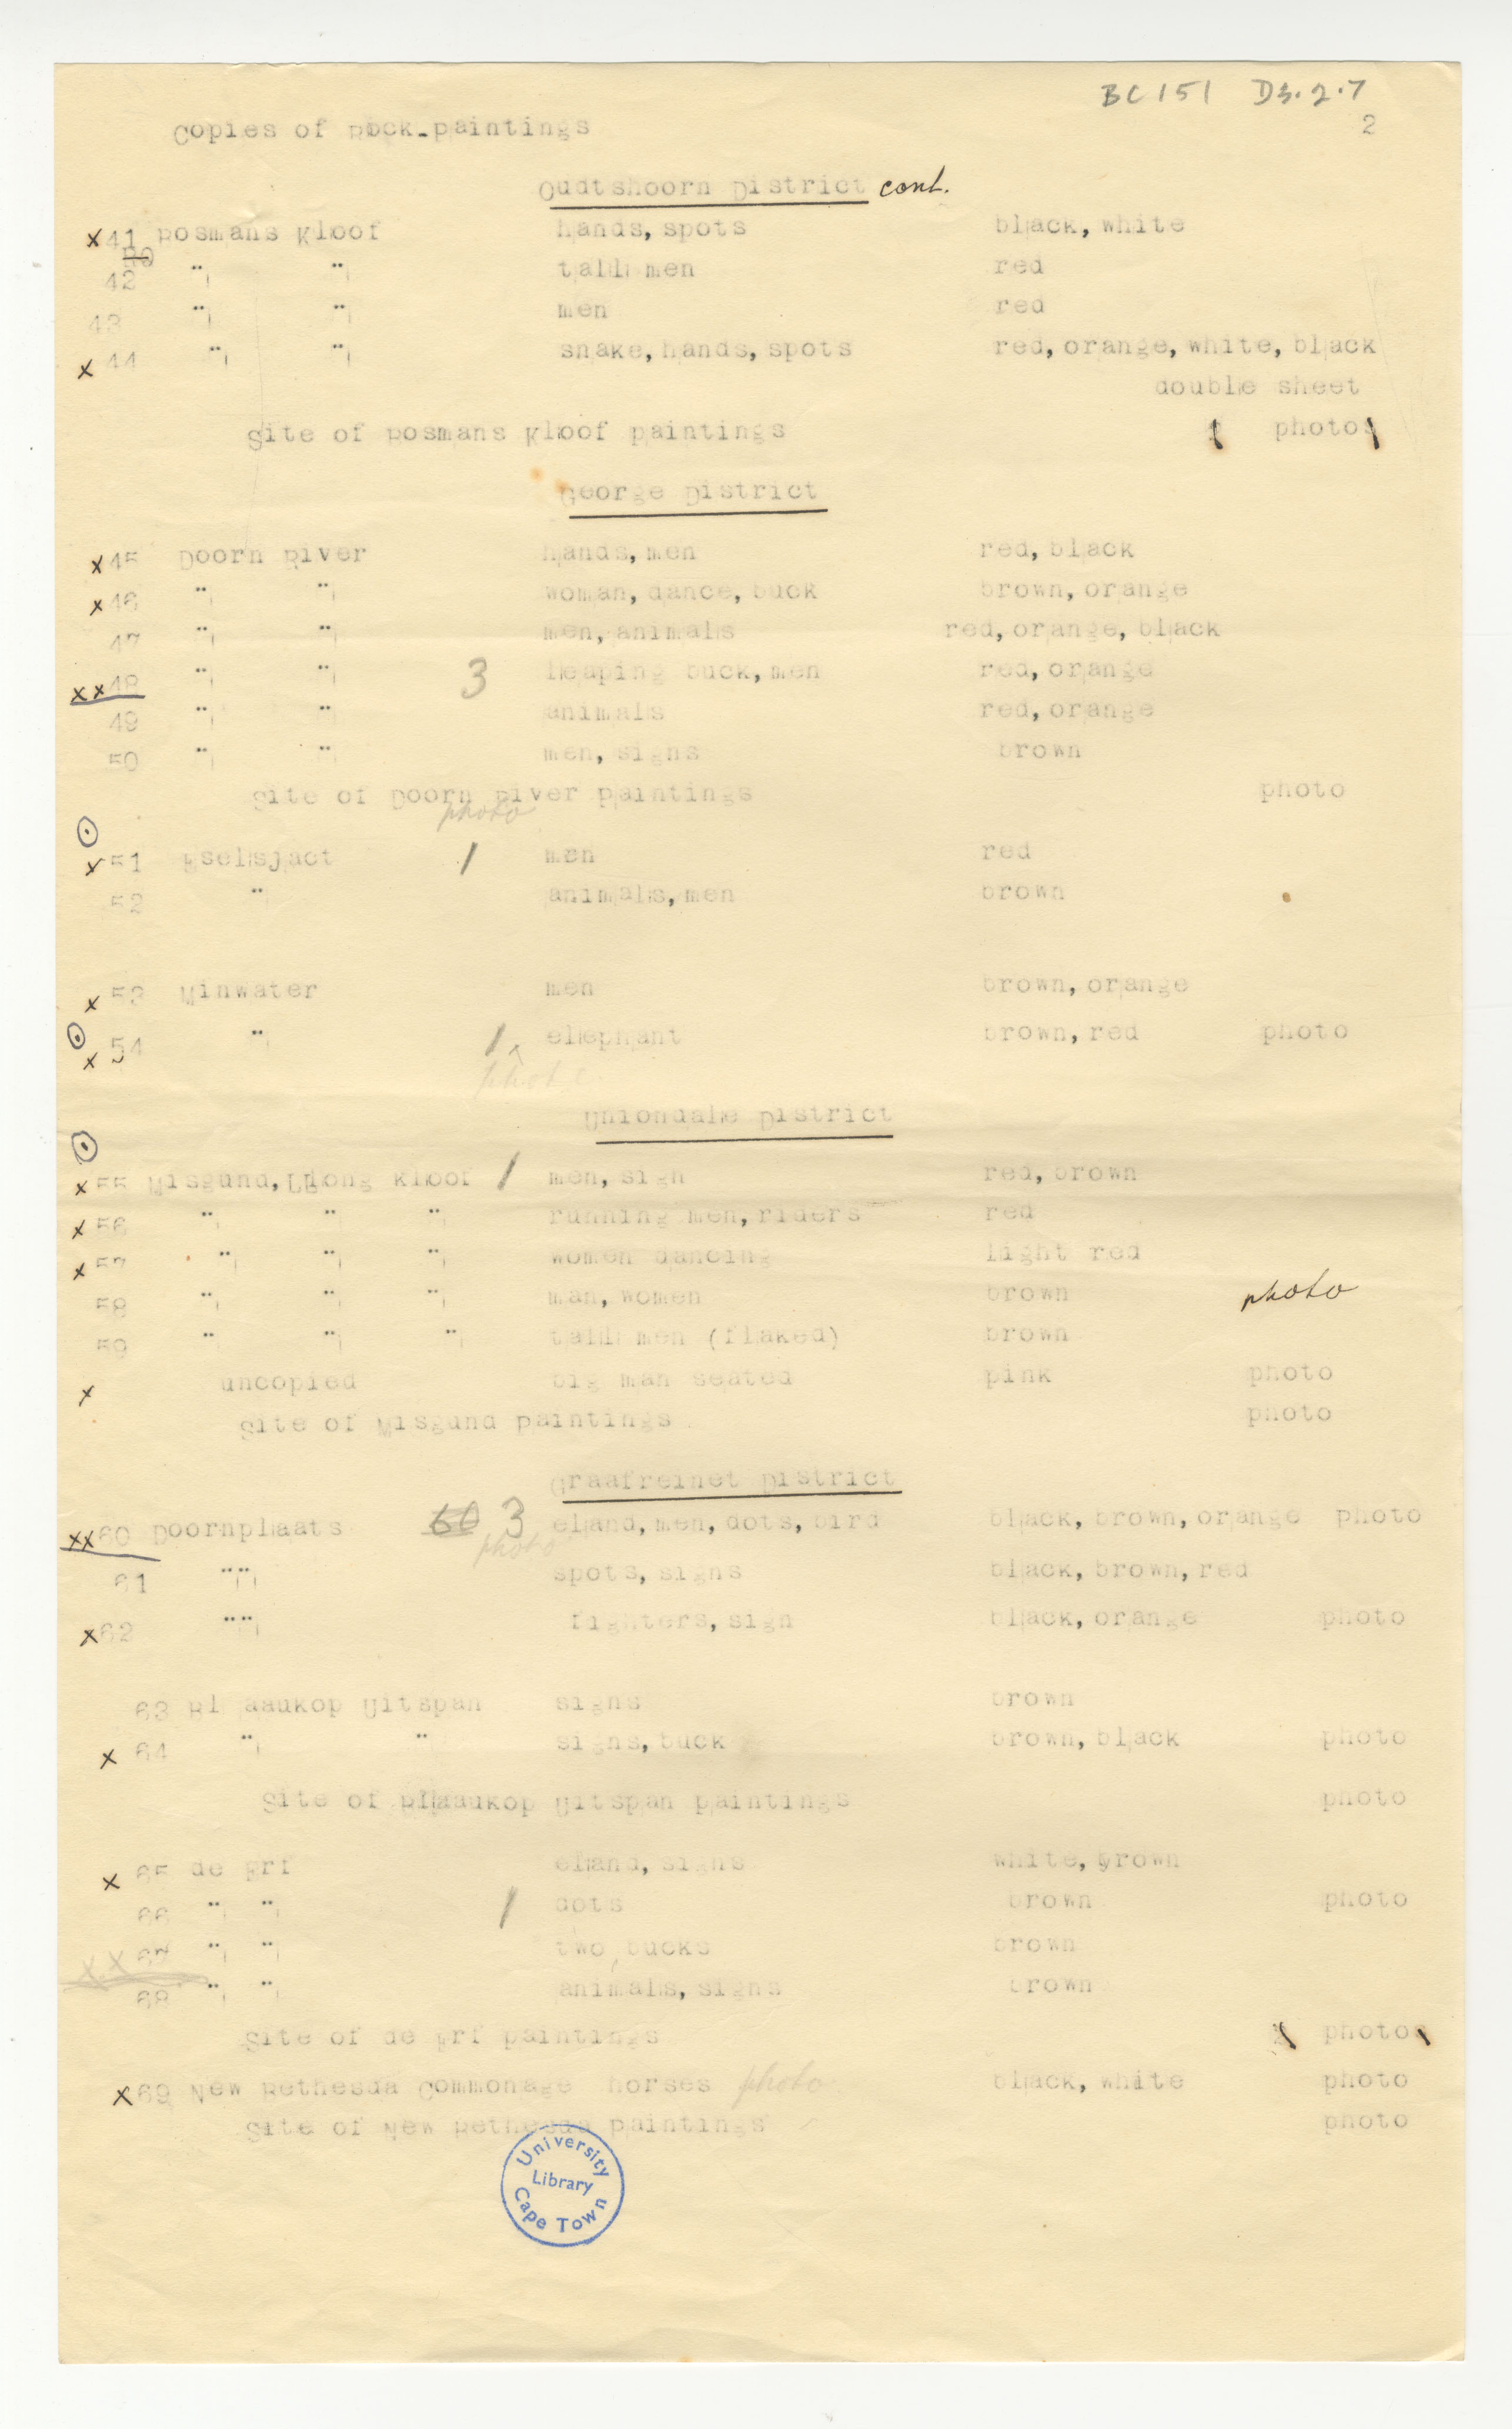 BC 151 D3.2.7
Copies of Rock-paintings 2
Oudtshoorn District cont.
x 41 Bosmans Kloof hands, spots black, white
42 " " tall men red
43 " " men red
x 44 " " snake, hands, spots red, orange, white, black
double sheet
Site of Bosmans Kloof paintings photo
George District
x 45 Doorn River hands, men red, black
x 46 " " woman, dance, buck brown, orange
47 " " men, animals red, orange, black
xx 48 " " 3 leaping buck, men red, orange
49 " " animals red, orange
50 " " men, signs brown
Site of Doorn River paintings photo
photo
x 51 Eselsjact 1 men red
52 " animals, men brown
x 53 Minwater men brown, orange
x 54 " 1 elephant brown, red photo
photo
Uniondale District
x 55 Misgund, Long Kloof 1 men, sign red, brown
x 56 " " " running men, riders red
x 57 " " " women dancing light red
58 " " " man, women brown photo
59 " " " tall men (flaked) brown
x uncopied big man seated pink photo
Site of Misgund paintings photo
Graafreinet District
xx 60 Doornplaats 60 3 eland, men, dots, bird black, brown, orange photo
photo
61 "" spots, signs black, brown, red
x 62 "" fighters, sign black, orange photo
63 Bl aaukop Uitspan signs brown
x 64 " " signs, buck brown, black photo
Site of Blaaukop Uitspan paintings photo
x 65 de Erf eland, signs white, brown
66 " " 1 dots brown photo
xx 67 " " two bucks brown
68 " " animals, signs brown
Site of de Erf paintings photo
x 69 New Bethesda Commonage horses photo black, white photo
Site of New Bethesda paintings photo
University
Library
Cape Town